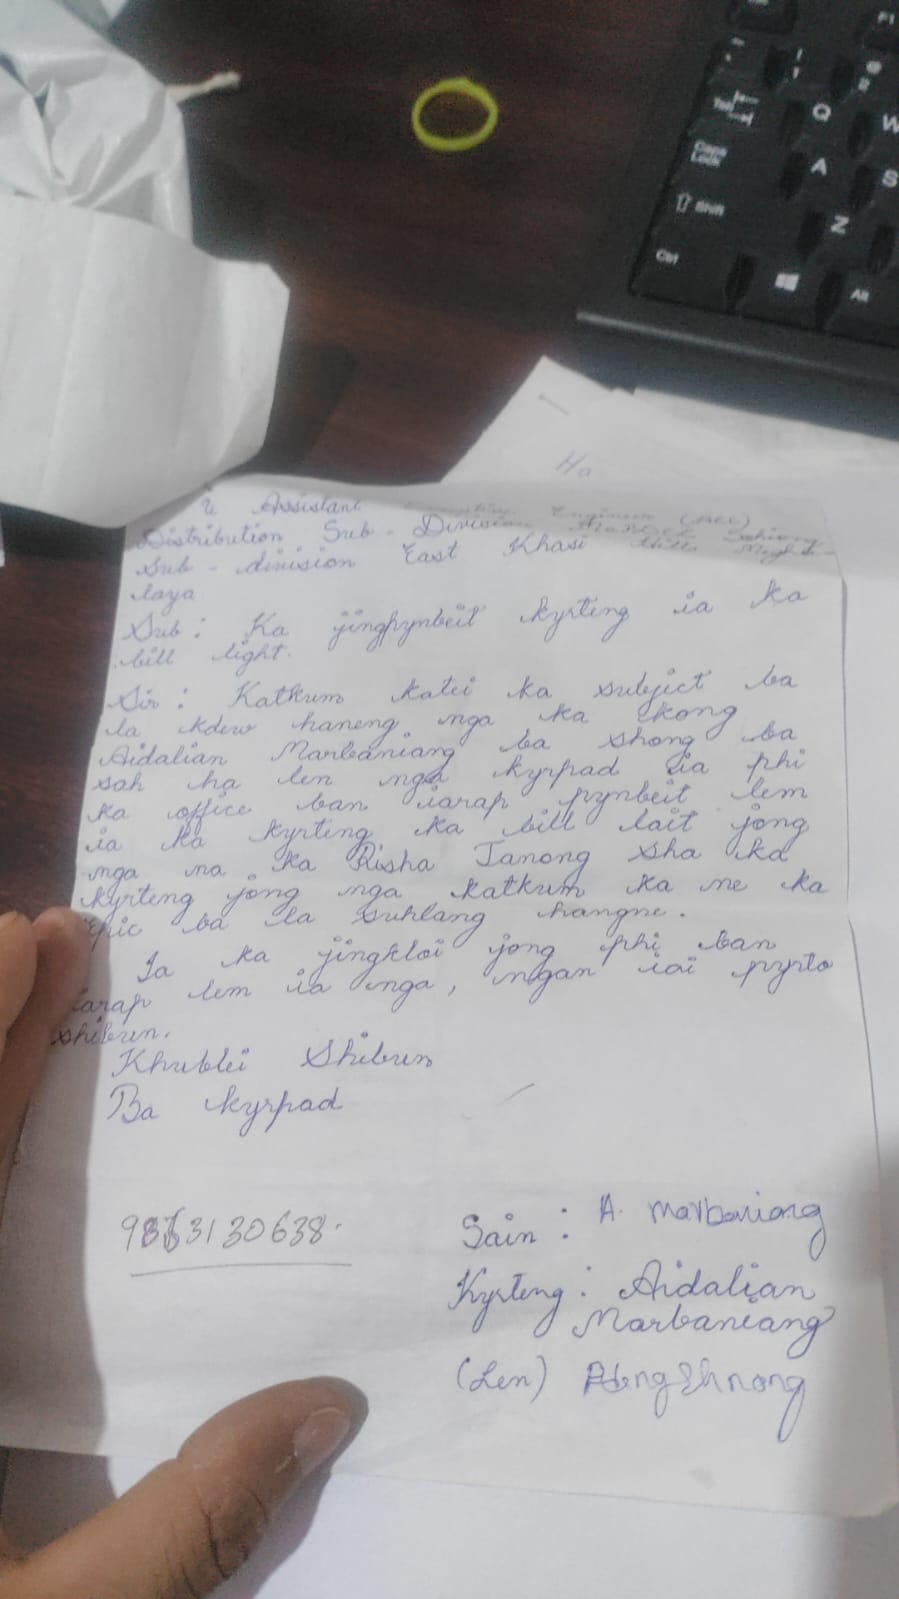 Ha
u Assistant Engineer
Distribution Sub - Division
Sub - division East Khasi Hills Megha-
laya
Sub : Ka jinghynbeit kyrteng ia ka
bill light.
Sir : Katkum katei ka subject ba
la kdew haneng nga ka Kong
Aidalian Marbaniang ba shong ba
sah ha len nga kyrpad ia phi
ka office ban iarap pynbeit lem
ia ka kyrteng ka bill lait jong
nga na ka Risha Janong sha ka
kyrteng jong nga katkum ka ne ka
Epic ba la suhlang hangne.
Ia ka jingkloi jong phi ban
iarap lem ia nga, ngan iai
shibun.
Khublei Shibun
Ba kyrpad
Sain : A. Marbaniang
Kyrteng : Aidalian
Marbaniang
(Len)
Q W
A S
Tab
Caps Lock
Shift
Z
Ctrl
Alt
F1